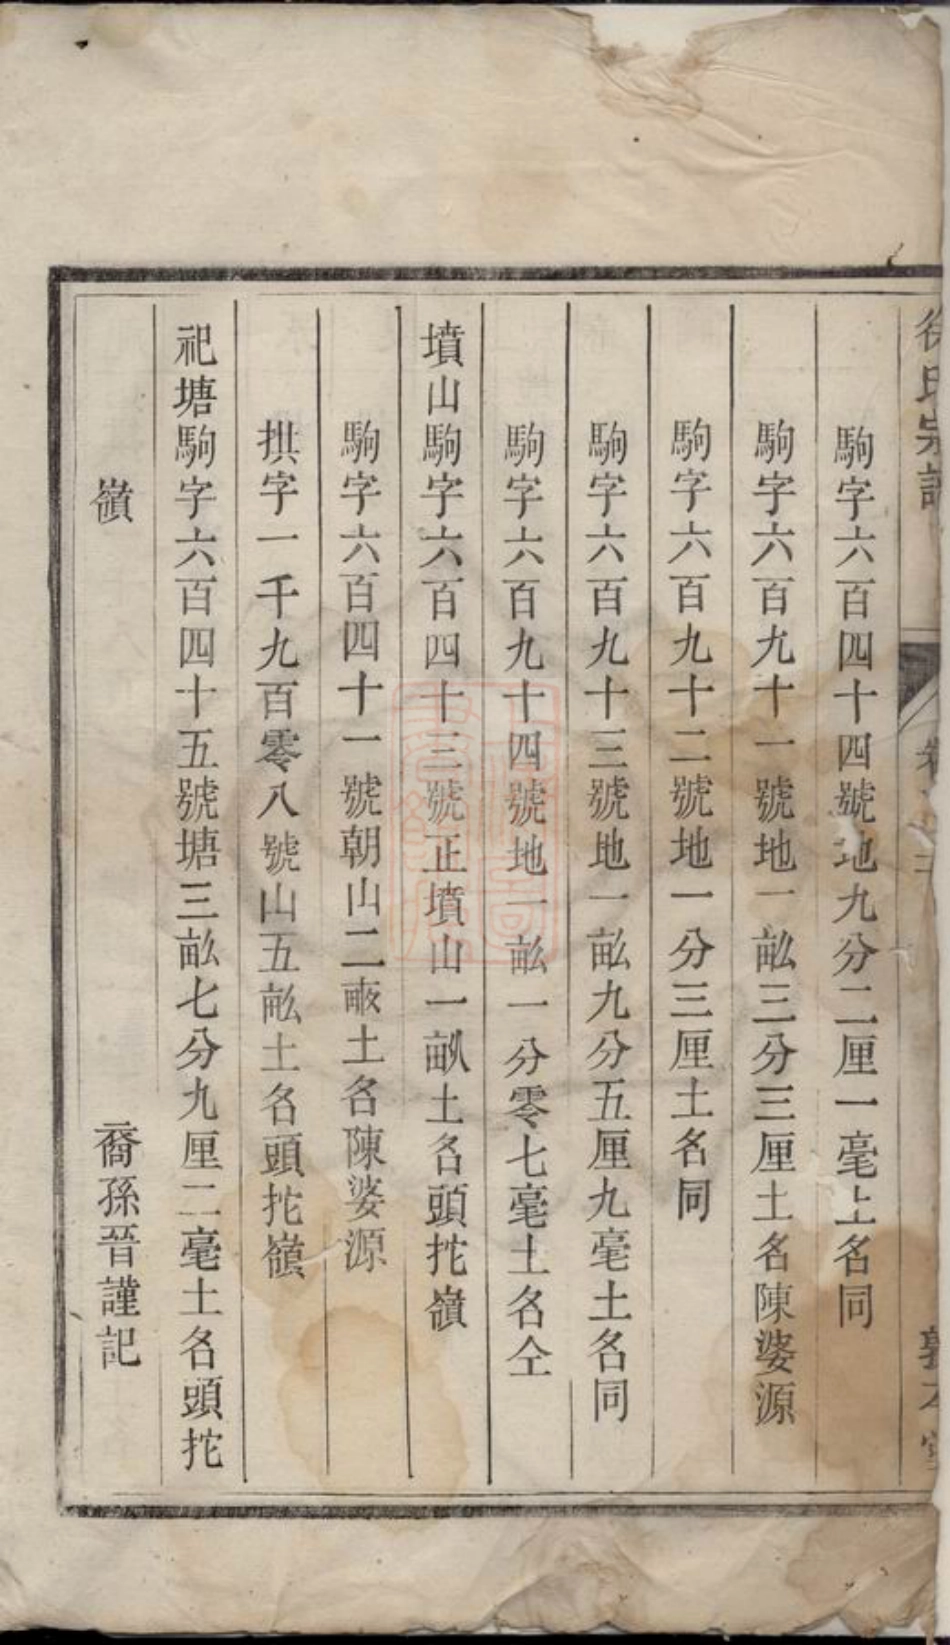 徐氏宗譜
敦本堂
駒字六百四十四號地九分二厘一毫土名同
駒字六百九十一號地一畝三分三厘土名陳婆源
駒字六百九十二號地一分三厘土名同
駒字六百九十三號地一畝九分五厘九毫土名同
駒字六百九十四號地一畝一分零七毫土名仝
墳山駒字六百四十三號正墳山一畝土名頭拕嶺
駒字六百四十一號朝山二畝土名陳婆源
拱字一千九百零八號山五畝土名頭拕嶺
祀塘駒字六百四十五號塘三畝七分九厘二毫土名頭拕
嶺　裔孫晉謹記